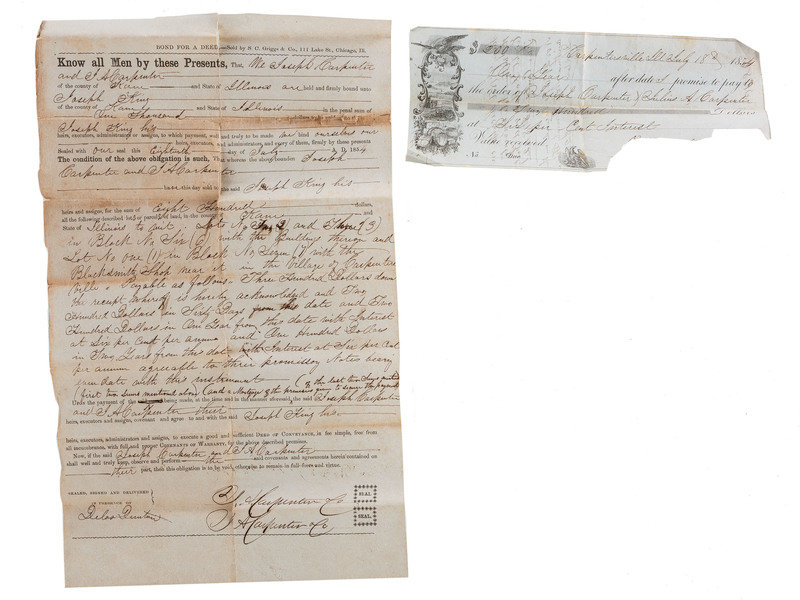 BOND FOR A DEED.—Sold by S. C. Griggs & Co., 111 Lake St., Chicago, Ill.
Know all Men by these Presents, That We Joseph Carpenter
and J A Carpenter
of the county of Kane and State of Illinois are held and firmly bound unto
Joseph King
of the county of Kane and State of Illinois in the penal sum of
One thousand
Joseph King his
heirs, executors, administrators or assigns, to which payment, well and truly to be made we bind ourselves our
heirs, executors, administrators, and every of them, firmly by these presents
Sealed with our seal this Eighteenth day of July A. D. 1854
The condition of the above obligation is such, That whereas the above bounden Joseph
Carpenter and J A Carpenter
have this day sold to the said Joseph King his
heirs and assigns, for the sum of Eight Hundred dollars,
all the following described lot or parcel of land, in the county of Kane and
State of Illinois to wit: Lots No and Three (3)
in Block No Six (6) with the Buildings thereon and
Lot No one (1) in Block No Seven (7) with the
Blacksmith Shop near it in the Village of Carpenters
ville. Payable as follows. Three Hundred Dollars down
the receipt whereof is hereby acknowledged and Two
Hundred Dollars in Sixty Days from this date and Two
Hundred Dollars in One Year from this date with Interest
at Six per Cent per annum and One Hundred Dollars
in Two Years from this date with Interest at Six per Cent
per annum agreeable to three promissory Notes bearing
even date with this instrument
(first two sums mentioned above (and a Mortgage of the premises given to secure the payment of the last two being
Upon the payment of the being made, at the time and in the manner aforesaid, the said Joseph Carpenter
and J A Carpenter their
heirs, executors and assigns, covenant and agree to and with the said Joseph King his
heirs, executors, administrators and assigns, to execute a good and sufficient DEED OF CONVEYANCE, in fee simple, free from
all incumbrance, with full and proper COVENANTS OF WARRANTY, for the above described premises.
Now, if the said Joseph Carpenter and J A Carpenter
shall well and truly keep, observe and perform the and covenants and agreements herein contained on
their part, then this obligation to be void, otherwise to remain in full force and virtue.
SEALED, SIGNED AND DELIVERED
IN PRESENCE OF
Delos Dunton
J. Carpenter
J A Carpenter
SEAL
SEAL
Carpentersville Ill July 18th 1854
One Year after date I promise to pay to
the order of Joseph Carpenter & Julius A Carpenter
Two Hundred Dollars
at Six per Cent Interest
Value received
No Due